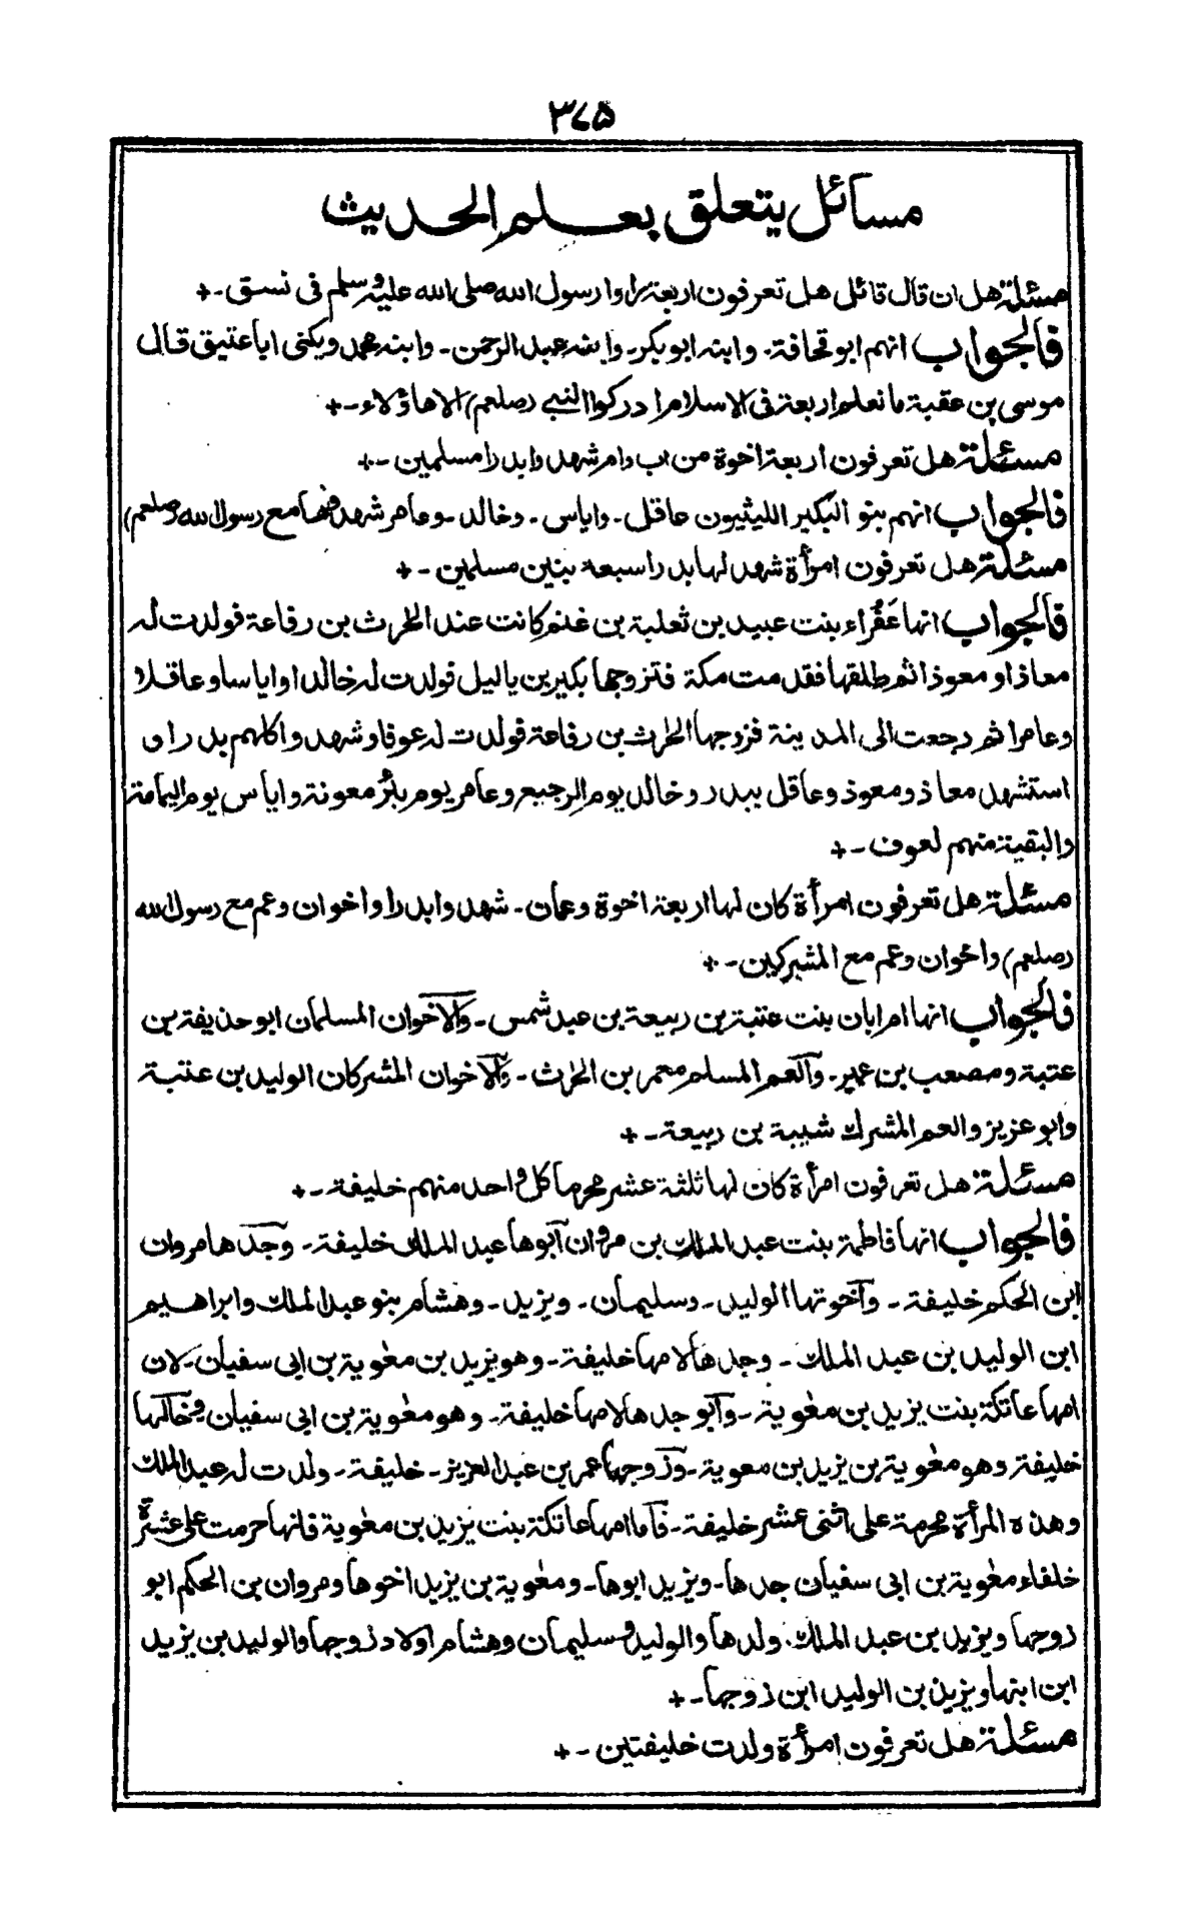 ٣٧٥
مسائل يتعلق بعلم الحديث
مسئلة هل ان قال قائل هل تعرفون اربعة راوا رسول الله صلى الله عليه وسلم فى نسق -+
فالجواب انهم ابو قحافة - وابنه ابو بكر - وابنه عبد الرحمن - وابنه محمد ويكنى ابا عتيق قال
موسى بن عقبة ما نعلم اربعة فى الاسلام ادركوا النبي (صلعم) الا هاؤلاء -+
مسئلة هل تعرفون اربعة اخوة من اب وام شهدوا بدرا مسلمين -+
فالجواب انهم بنو البكير الليثيون عاقل - واياس - وخالد - وعامر شهدوها مع رسول الله (صلعم)
مسئلة هل تعرفون امرأة شهد لها بدرا سبعة بنين مسلمين -+
فالجواب انها عفراء بنت عبيد بن ثعلبة بن غنم كانت عند الحرث بن رفاعة فولدت له
معاذا و معوذا ثم طلقها فقدمت مكة فتزوجها بكير بن ياليل فولدت له خالدا واياسا وعاقلا
وعامرا ثم رجعت الى المدينة فزوجها الحرث بن رفاعة فولدت له عوفا وشهدوا كلهم بدرا و
استشهد معاذ و معوذ و عاقل ببدر وخالد يوم الرجيع وعامر يوم بئر معونة واياس يوم اليمامة
والبقية منهم لعوف -+
مسئلة هل تعرفون امرأة كان لها اربعة اخوة وعمان - شهدوا بدرا واخوان وعم مع رسول الله
(صلعم) واخوان وعم مع المشركين -+
فالجواب انها ام ابان بنت عتبة بن ربيعة بن عبد شمس - والاخوان المسلمان ابو حذيفة بن
عتبة ومصعب بن عمير - والعم المسلم معمر بن الحرث - والاخوان المشركان الوليد بن عتبة
وابو عزيز والعم المشرك شيبة بن ربيعة -+
مسئلة هل تعرفون امرأة كان لها ثلثة عشر محرما كل واحد منهم خليفة -+
فالجواب انها فاطمة بنت عبد الملك بن مروان ابوها عبد الملك خليفة - وجدها مروان
ابن الحكم خليفة - واخوتها الوليد - وسليمان - ويزيد - وهشام بنو عبد الملك وابراهيم
ابن الوليد بن عبد الملك - وجدها لامها خليفة - وهو يزيد بن معٰوية بن ابى سفيان - لان
امها عاتكة بنت يزيد بن معٰوية - وابو جدها لامها خليفة - وهو معٰوية بن ابى سفيان وخالها
خليفة وهو معٰوية بن يزيد بن معوية - وزوجها عمر بن عبد العزيز - خليفة - ولدت له عبد الملك
وهذه المرأة محرمة على اثنى عشر خليفة - فاما امها عاتكة بنت يزيد بن معٰوية فانها حرمت على عشرة
خلفاء معٰوية بن ابى سفيان جدها - ويزيد ابوها - ومعٰوية بن يزيد اخوها ومروان بن الحكم ابو
زوجها ويزيد بن عبد الملك - ولدها والوليد وسليمان وهشام اولاد زوجها والوليد بن يزيد
ابن ابنها ويزيد بن الوليد ابن زوجها -+
مسئلة هل تعرفون امرأة ولدت خليفتين -+